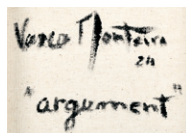 Vasco Monteiro
24
"argument"